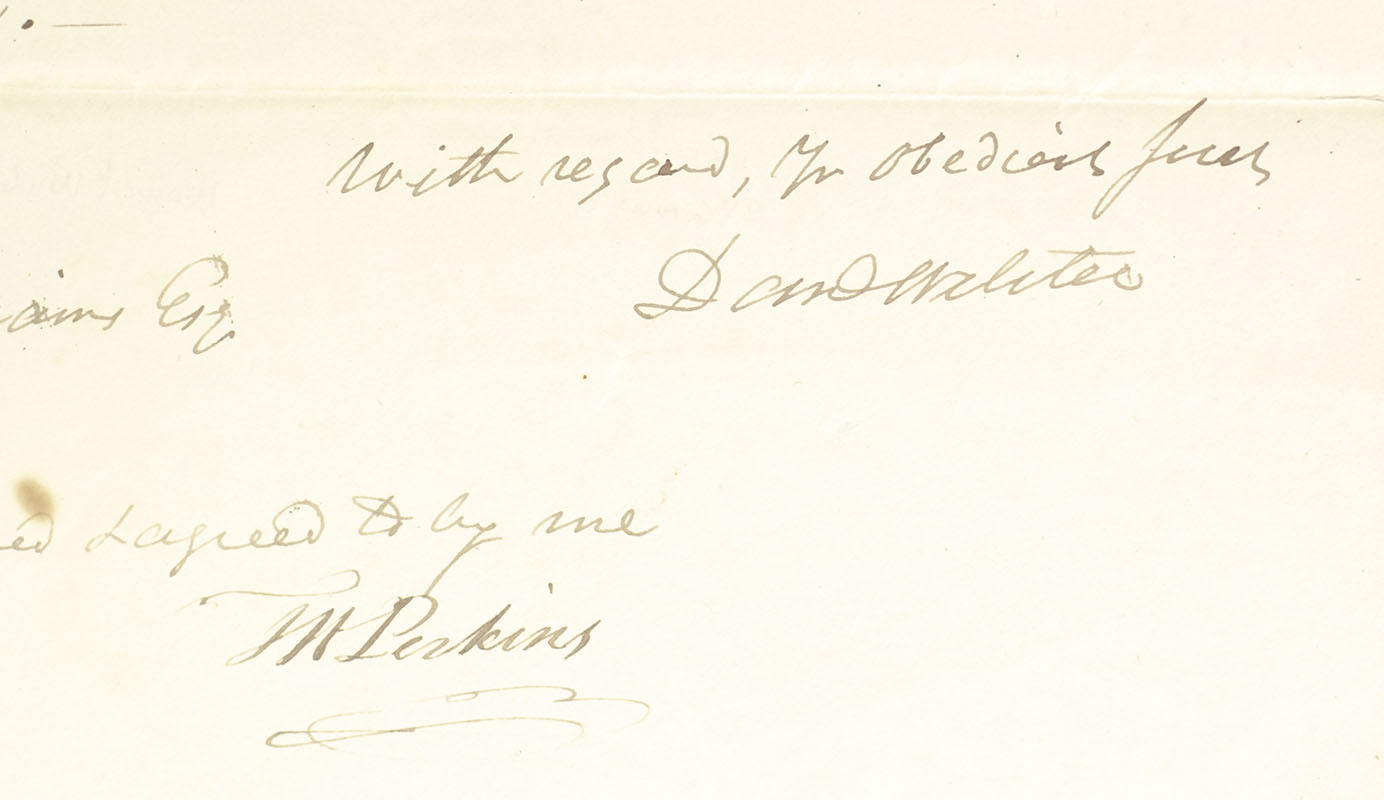 With regard, Yr obedient servt
Danl Webster
Esq
& agreed to by me
TH Perkins